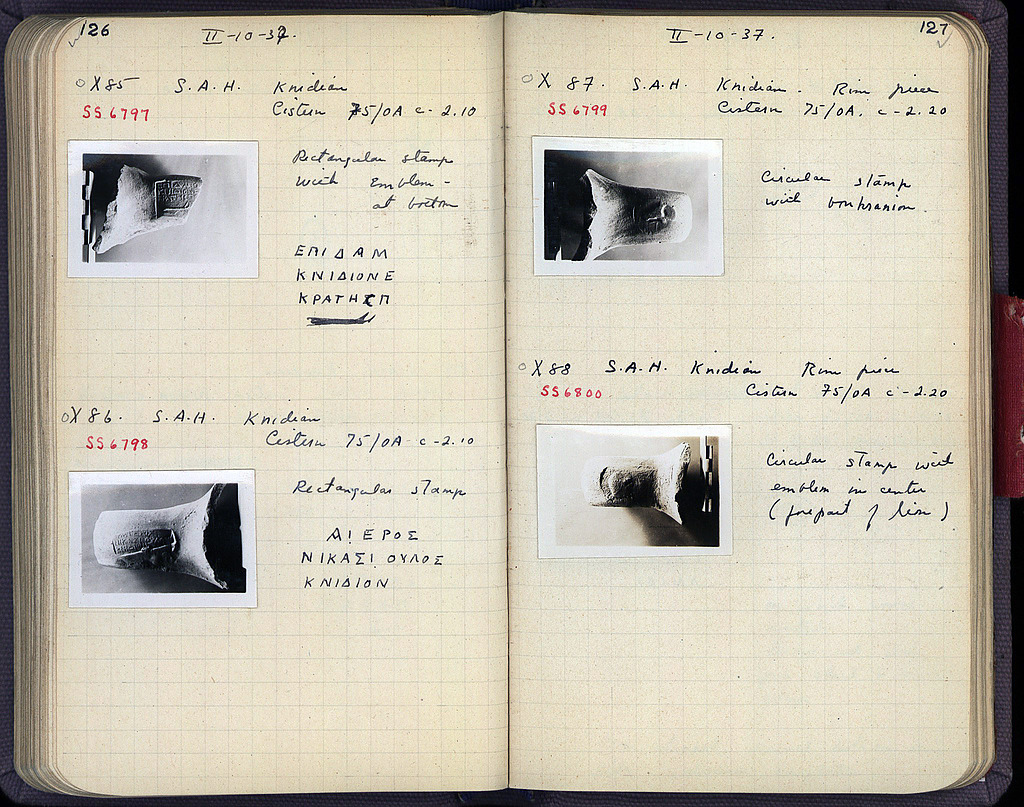 126
II-10-37.
X 85 S.A.H. Knidian
SS 6797 Cistern 75/OA c-2.10
Rectangular stamp
with Emblem -
at bottom
ΕΠΙ ΔΑΜ
ΚΝΙΔΙΟΝ Ε
ΚΡΑΤΗΣΠ
X 86. S.A.H. Knidian
SS 6798 Cistern 75/OA c-2.10
Rectangular stamp
ΑΙ ΕΡΟΣ
ΝΙΚΑΣΙ ΟΥΛΟΣ
ΚΝΙΔΙΟΝ
127
II-10-37.
X 87. S.A.H. Knidian. Rim piece
SS 6799 Cistern 75/OA. c-2.20
Circular stamp
with boukranion.
X 88 S.A.H. Knidian Rim piece
SS 6800 Cistern 75/OA c-2.20
Circular stamp with
emblem in center
(forepart of lion)